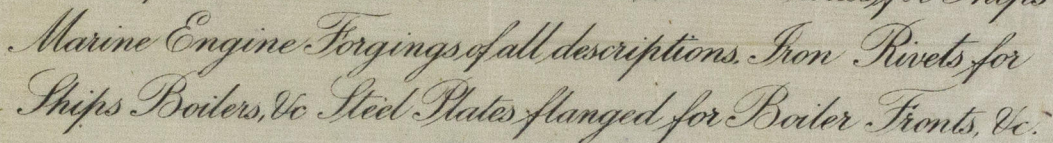 Marine Engine Forgings of all descriptions. Iron Rivets for
Ships Boilers, &c Steel Plates flanged for Boiler Fronts, &c.